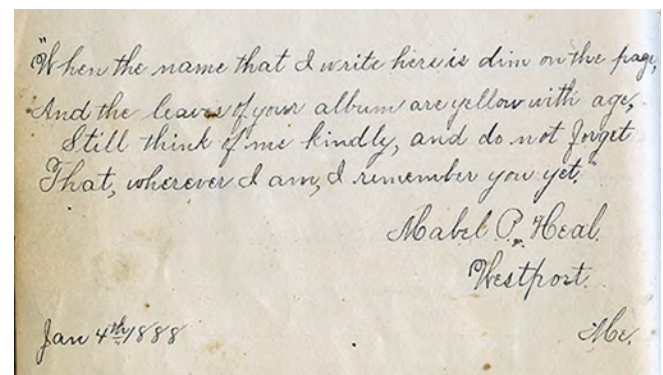 "When the name that I write here is dim on the page,
And the leaves of your album are yellow with age,
Still think of me kindly, and do not forget
That, wherever I am, I remember you yet."
Mabel P. Heal.
Westport.
Jan 4th 1888 Me.